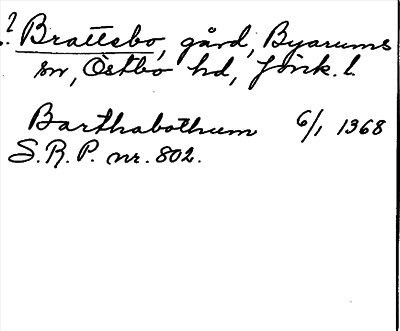 ? Brattsbo, gård, Byarums
sn, Östbo hd, Jönk. l.
Barthabothum 6/1 1368
S.R.P. nr. 802.